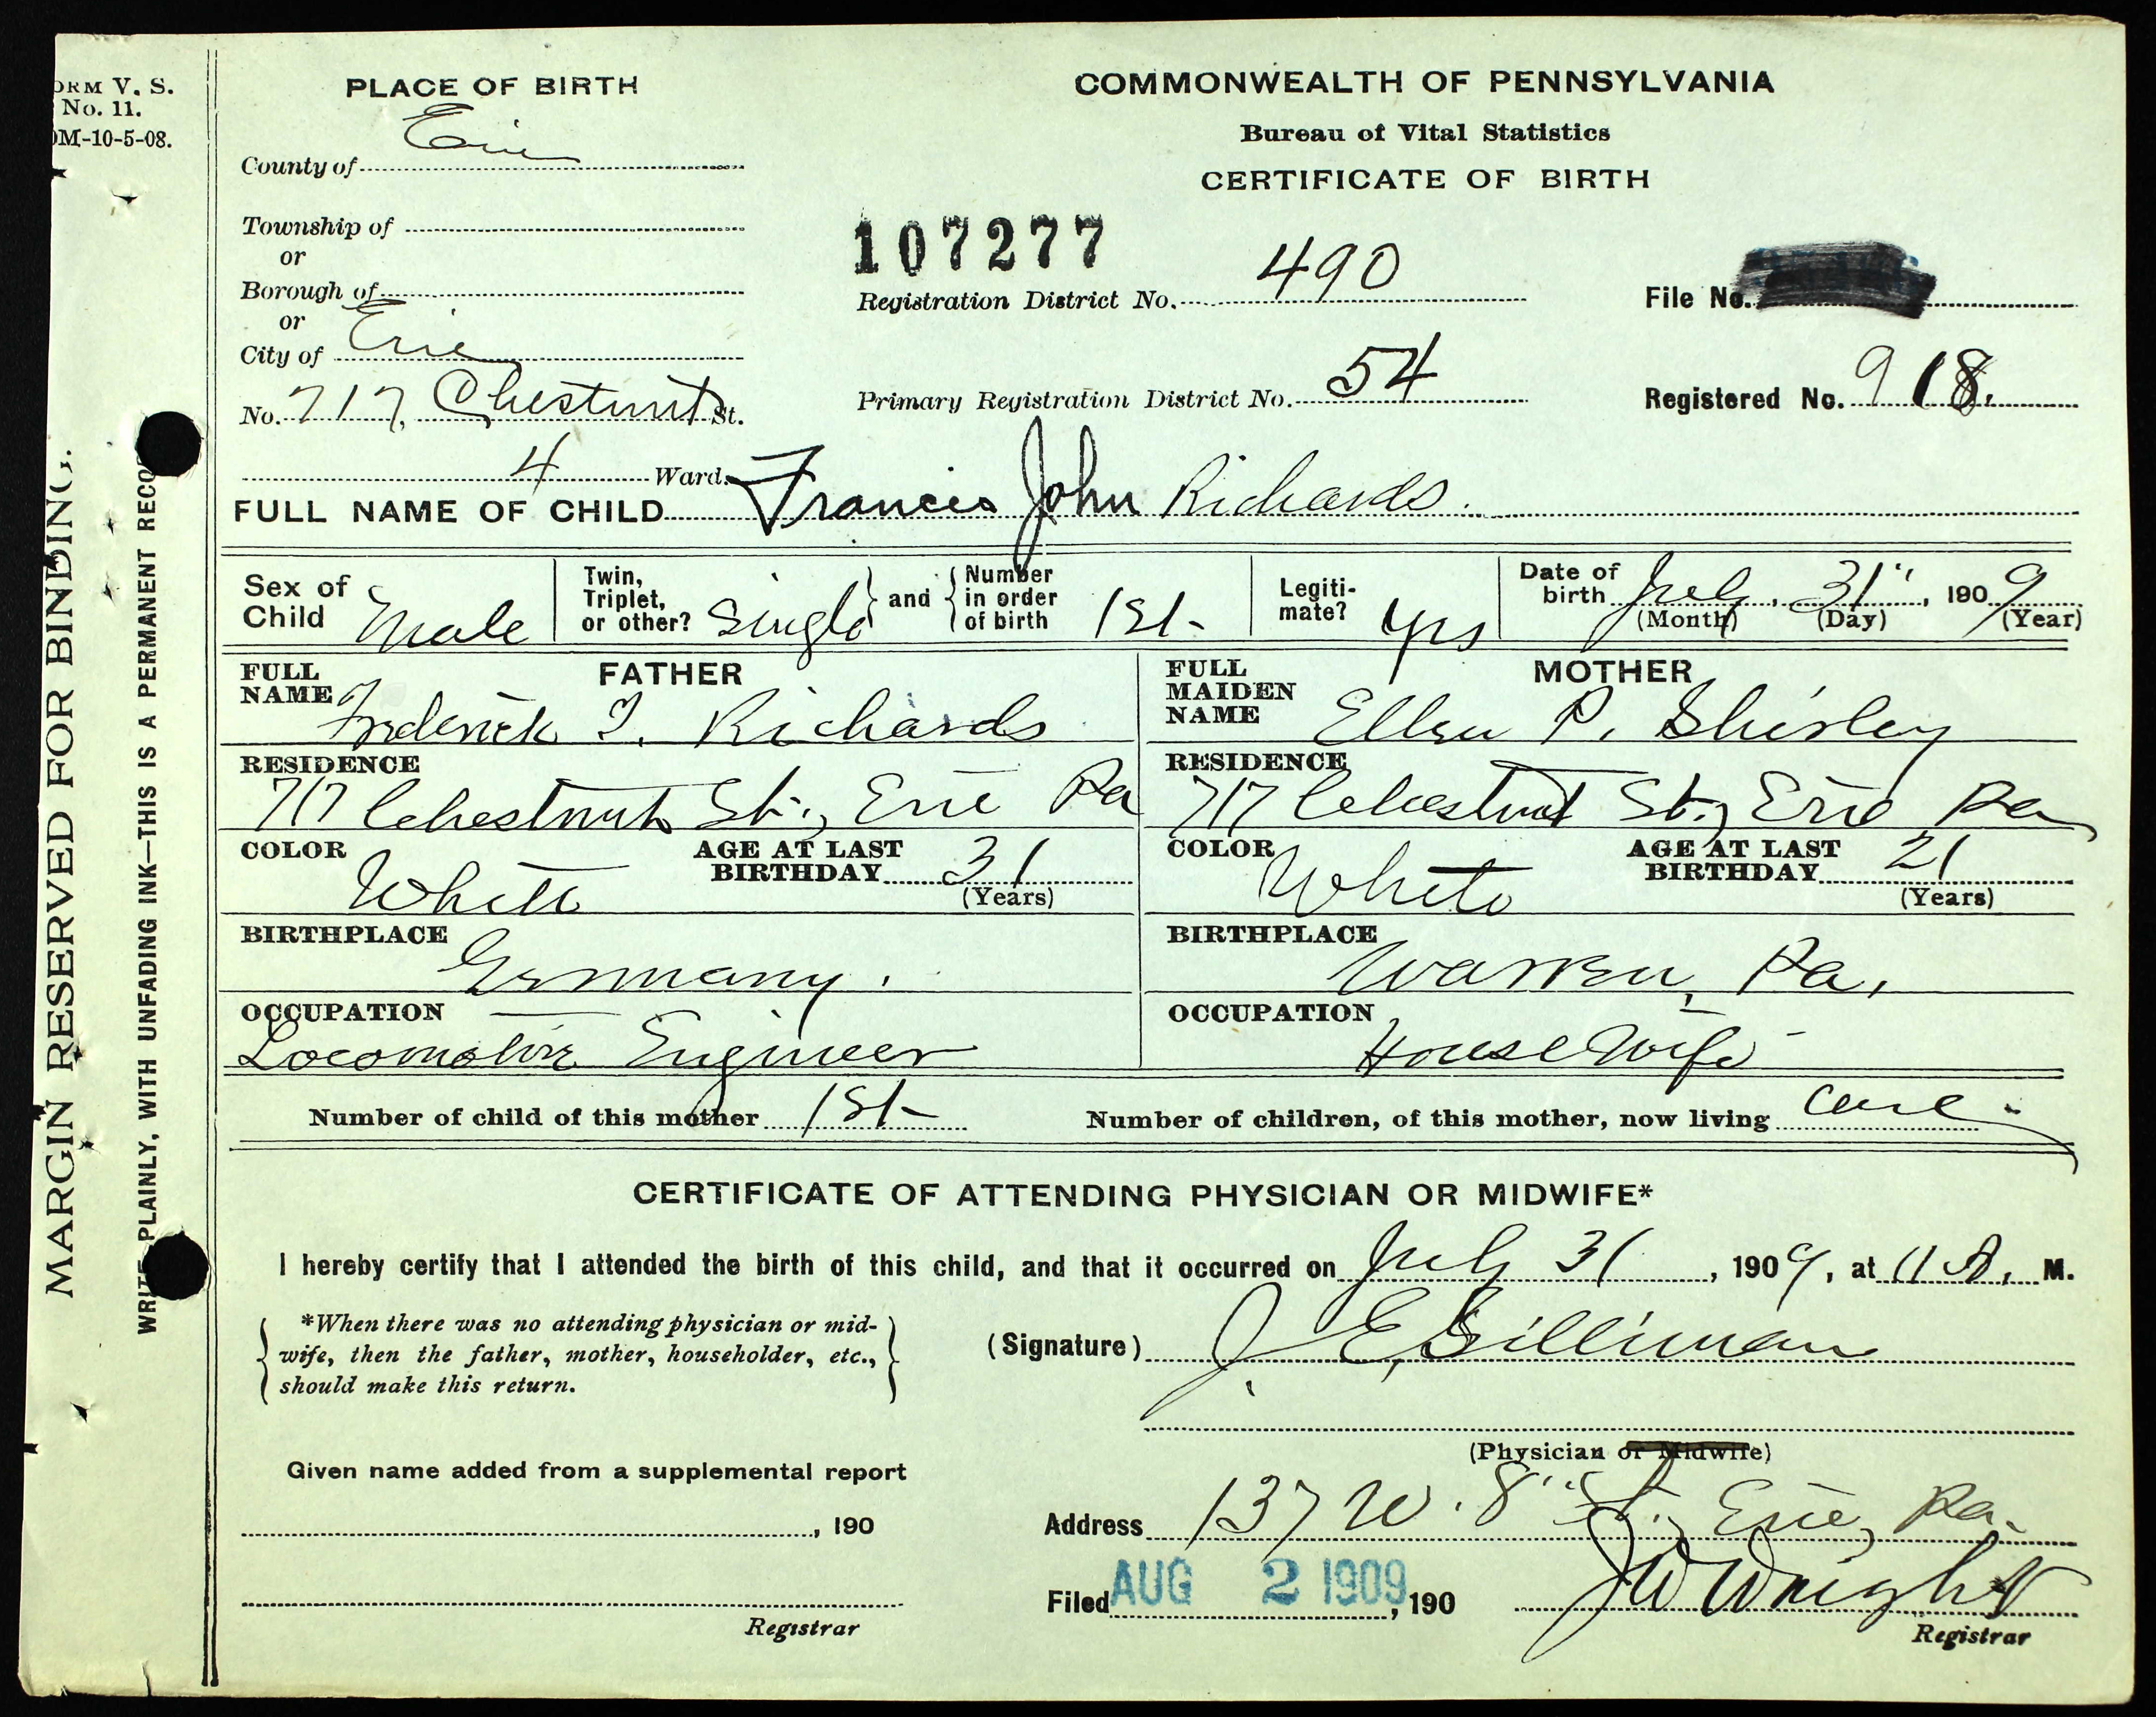 ORM V. S.
No. 11.
0M-10-5-08.
MARGIN RESERVED FOR BINDING.
WRITE PLAINLY, WITH UNFADING INK—THIS IS A PERMANENT RECO
PLACE OF BIRTH
County of Erie
Township of
or
Borough of
or
City of Erie
No. 717, Chestnut St.
4 Ward.
COMMONWEALTH OF PENNSYLVANIA
Bureau of Vital Statistics
CERTIFICATE OF BIRTH
107277
Registration District No. 490
File No.
Primary Registration District No. 54
Registered No. 918.
FULL NAME OF CHILD Francis John Richards.
Sex of Child Male
Twin, Triplet, or other? Single
and
Number in order of birth 1st-
Legiti-mate? Yes
Date of birth July, 31", 1909
(Month) (Day) (Year)
FATHER
FULL NAME Frederick Richards
RESIDENCE
717 Chestnut St., Erie Pa
COLOR White
AGE AT LAST BIRTHDAY 31
(Years)
BIRTHPLACE
Germany.
OCCUPATION
Locomotive Engineer
MOTHER
FULL MAIDEN NAME Ellen P. Shirley
RESIDENCE
717 Chestnut St., Erie Pa
COLOR White
AGE AT LAST BIRTHDAY 21
(Years)
BIRTHPLACE
Warren, Pa.
OCCUPATION
House Wife
Number of child of this mother 1st-
Number of children, of this mother, now living one
CERTIFICATE OF ATTENDING PHYSICIAN OR MIDWIFE*
I hereby certify that I attended the birth of this child, and that it occurred on July 31, 1909, at 11 A. M.
*When there was no attending physician or mid-
wife, then the father, mother, householder, etc.,
should make this return.
(Signature) J. E. Silliman
(Physician or Midwife)
Given name added from a supplemental report
, 190
Registrar
Address 137 W. 8" St., Erie, Pa.
Filed AUG 2 1909, 190
J W Wright
Registrar